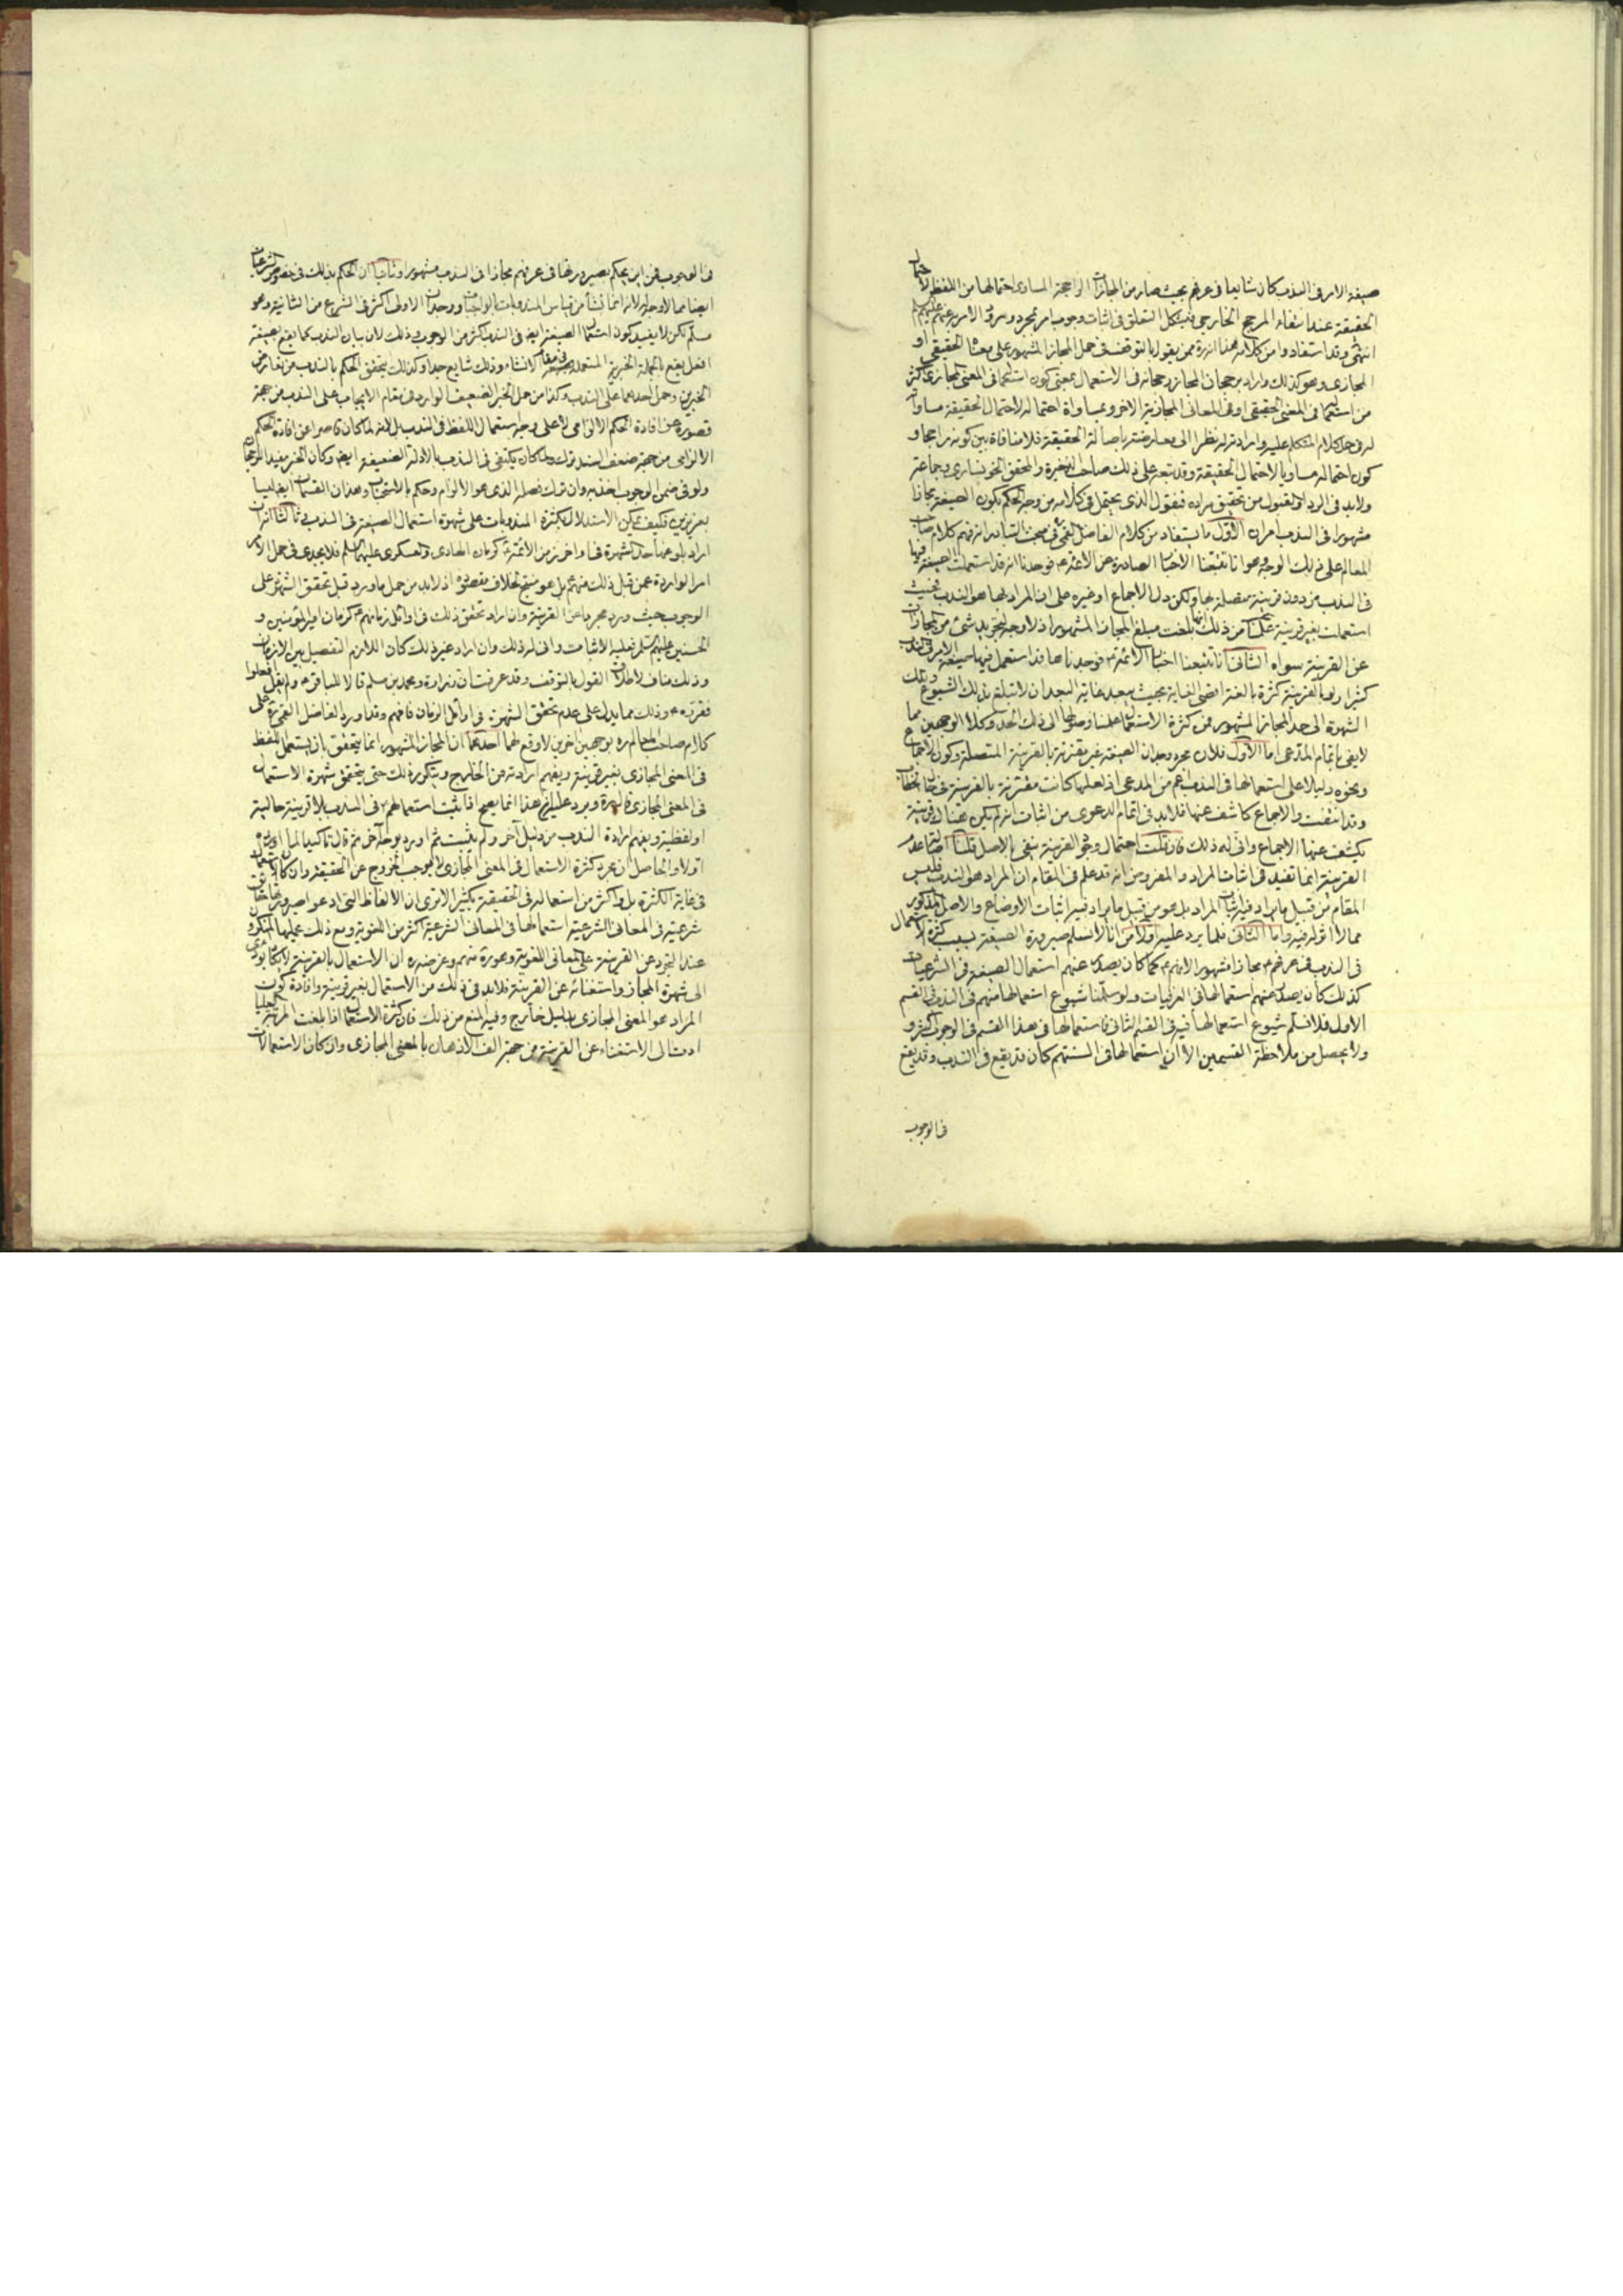 صيغة الامر فى الندب كان شايعا فى عرفهم بحيث صار من المجازات الراجحة المساوى احتمالها من اللفظ لاحتمال
الحقيقة عند انتفاء المرجح الخارجى فيشكل التعلق فى اثبات وجوب امر بمجرد ورود الامر به عنهم عليهم
انتهى وقد استفادوا من كلامه هذا انه ره ممن يقول بالتوقف فى حمل المجاز المشهور على معناه الحقيقى او
المجازى وهو كذلك واراد برجحان المجاز رجحانه فى الاستعمال بمعنى كون استعماله فى المعنى المجازى اكثر
من استعماله فى المعنى الحقيقى او فى المعانى المجازية الاخر وبمساواة احتماله لاحتمال الحقيقة مساواته
له فى حمل كلام المتكلم عليه وارادته له نظرا الى معارضته باصالة الحقيقة فلا منافاة بين كونه راجحا و
كون احتماله مساويا لاحتمال الحقيقة وقد تبعه على ذلك صاحب الذخيرة والمحقق الخونسارى وجماعة
ولا بد فى الرد او القبول من تحقيق مراده فنقول الذى يحتمل فى كلامه من وجه الحكم بكون الصيغة مجازا
مشهورا فى الندب امران الاول ما يستفاد من كلام الفاضل القمى فى مبحث التبادر انه فهم كلام صاحب
المعالم على ذلك الوجه وهو انا تتبعنا الاخبار الصادرة عن الائمة ع فوجدنا انه قد استعملت الصيغة فيها
فى الندب من دون قرينة متصلة بها ولكن دل الاجماع او غيره على ان المراد بها هو الندب فحيث
استعملت بغير قرينة علمنا من ذلك انها بلغت مبلغ المجاز المشهور اذ لا وجه لتجريد شئ من المجازات
عن القرينة سواه الثانى انا تتبعنا اخبار الائمة ع فوجدناها قد استعمل فيها صيغة الامر فى الندب
كثيرا ولو بالقرينة كثرة بالغة اقصى الغاية بحيث يبعد غاية البعد ان لا تبلغ بذلك الشيوع وتلك
الشهرة الى حد المجاز المشهور فمن كثرة الاستعمال علمنا وصولها الى ذلك الحد وكلا الوجهين مما
لا يفى باتمام المدعى اما الاول فلان مجرد وجدان الصيغة غير مقترنة بالقرينة المتصلة وكون الاجماع
ونحوه دليلا على استعمالها فى الندب اعم من المدعى اذ لعلها كانت مقترنة بالقرينة فى حال الخطاب
وقد انتفت والاجماع كاشف عنها فلا بد فى اتمام الدعوى من اثبات انه لم يكن هناك قرينة
يكشف عنها الاجماع وانى له ذلك فان قلت احتمال وجود القرينة ينفى بالاصل قلنا اصالة عدم
القرينة انما تفيد فى اثبات المراد والمفروض انه قد علم فى المقام ان المراد هو الندب فليس
المقام من قبيل ما يراد فيه اثبات المراد بل هو من قبيل ما يراد فيه اثبات الاوضاع والاصل المذكور
مما لا اثر له فيه واما الثانى فلما يرد عليه اولا من انا لا نسلم صيرورة الصيغة بسبب كثرة الاستعمال
فى الندب فى عرفهم ع مجازا مشهورا لانهم ع كما كان يصدر عنهم استعمال الصيغة فى الشرعيات
كذلك كان يصدر عنهم استعمالها فى العرفيات ولو سلمنا شيوع استعمالها منهم فى الندب فى القسم
الاول فلا نسلم شيوع استعمالها فيه فى القسم الثانى فاستعمالها فى هذا القسم فى الوجوب اكثر و
ولا يحصل من ملاحظة القسمين الا ان استعمالها فى السنتهم كان قد يقع فى الندب وقد يقع
فى الوجوب
فى الوجوب فمن اين يحكم بصيرورتها فى عرفهم مجازا فى الندب مشهورا وثانيا ان الحكم بذلك فى خصوص الشرعيات
ايضا مما لا وجه له لانه انما نشأ من قياس المندوبات بالواجبات ووجدان الاولى اكثر فى الشرع من الثانية وهو
مسلم لكن لا يفيد كون استعمال الصيغة ايضا فى الندب اكثر من الوجوب وذلك لان بيان الندب كما يقع بصيغة
افعل يقع بالجملة الخبرية المستعملة فى مقام الانشاء وذلك شايع جدا وكذلك يتحقق الحكم بالندب من تعارض
الخبرين وحمل احدهما على الندب وكذا من حمل الخبر الضعيف الوارد فى مقام الايجاب على الندب من جهة
قصوره عن افادة الحكم الالزامى لا على وجه استعمال اللفظ فى الندب بل لانه لما كان قاصرا عن افادة الحكم
الالزامى من جهة ضعف السند ترك ولما كان يكتفى فى الندب بالادلة الضعيفة ايضا وكان الخبر مفيدا للرجحان
ولو فى ضمن الوجوب اخذ به وان ترك فصله الذى هو الالزام وحكم بالاستحباب وهذان القسمان ايضا ليسا
بعزيزين فكيف يمكن الاستدلال بكثرة المندوبات على شهرة استعمال الصيغة فى الندب وثالثا انه ان
اراد بلوغها حد الشهرة فى اواخر زمن الائمة ع كزمان الهادى والعسكرى عليهما السلم فلا يجدى فى حمل الاوامر
الواردة عمن قبل ذلك منهم ع بل هو منتج لخلاف مقصوده اذ لا بد من حمل ما ورد قبل تحقق الشهرة على
الوجوب حيث ورد مجردا عن القرينة وان اراد تحقق ذلك فى اوائل زمانهم ع كزمان امير المؤمنين و
الحسنين عليهم السلم فعليه الاثبات وانى له ذلك وان اراد غير ذلك كان اللازم التفصيل بين الازمان
وذلك مناف لاطلاق القول بالتوقف وقد عرفت ان زرارة ومحمد بن مسلم قالا للباقر ع ولم يقل افعلوا
فقررهما ع وذلك مما يدل على عدم تحقق الشهرة فى اوائل الزمان فافهم وقد اورد الفاضل القمى ره على
كلام صاحب المعالم ره بوجهين اخرين لا وقع لهما احدهما ان المجاز المشهور انما يتحقق بان يستعمل اللفظ
فى المعنى المجازى بغير قرينة ويفهم ارادته من الخارج ويتكرر ذلك حتى يتحقق شهرة الاستعمال
فى المعنى المجازى ويرد عليه ان هذا انما يصح اذا ثبت استعمالهم فى الندب بلا قرينة حالية
او لفظية ويفهم ارادة الندب من دليل آخر ولم يثبت ثم اورد بوجه آخر ثم قال تاكيدا لما اورده
اولا والحاصل ان مجرد كثرة الاستعمال فى المعنى المجازى لا يوجب الخروج عن الحقيقة وان كان الاستعمال
فى غاية الكثرة بل واكثر من استعماله فى الحقيقة بكثير الا ترى ان الالفاظ التى ادعوا صيرورتها حقايق
شرعية فى المعانى الشرعية استعمالها فى المعانى الشرعية اكثر من اللغوية ومع ذلك يحملها المنكرون
عند التجرد عن القرينة على المعانى اللغوية وغرضه ره ان الاستعمال بالقرينة لا يكاد يؤدى
الى شهرة المجاز واستغنائه عن القرينة فلا بد فى ذلك من الاستعمال بغير قرينة وافادة كون
المراد هو المعنى المجازى بدليل خارج وفيه المنع من ذلك فان كثرة الاستعمال اذا بلغت المرتبة العليا
ادت الى الاستغناء عن القرينة من جهة الف الاذهان بالمعنى المجازى وان كان الاستعمالات